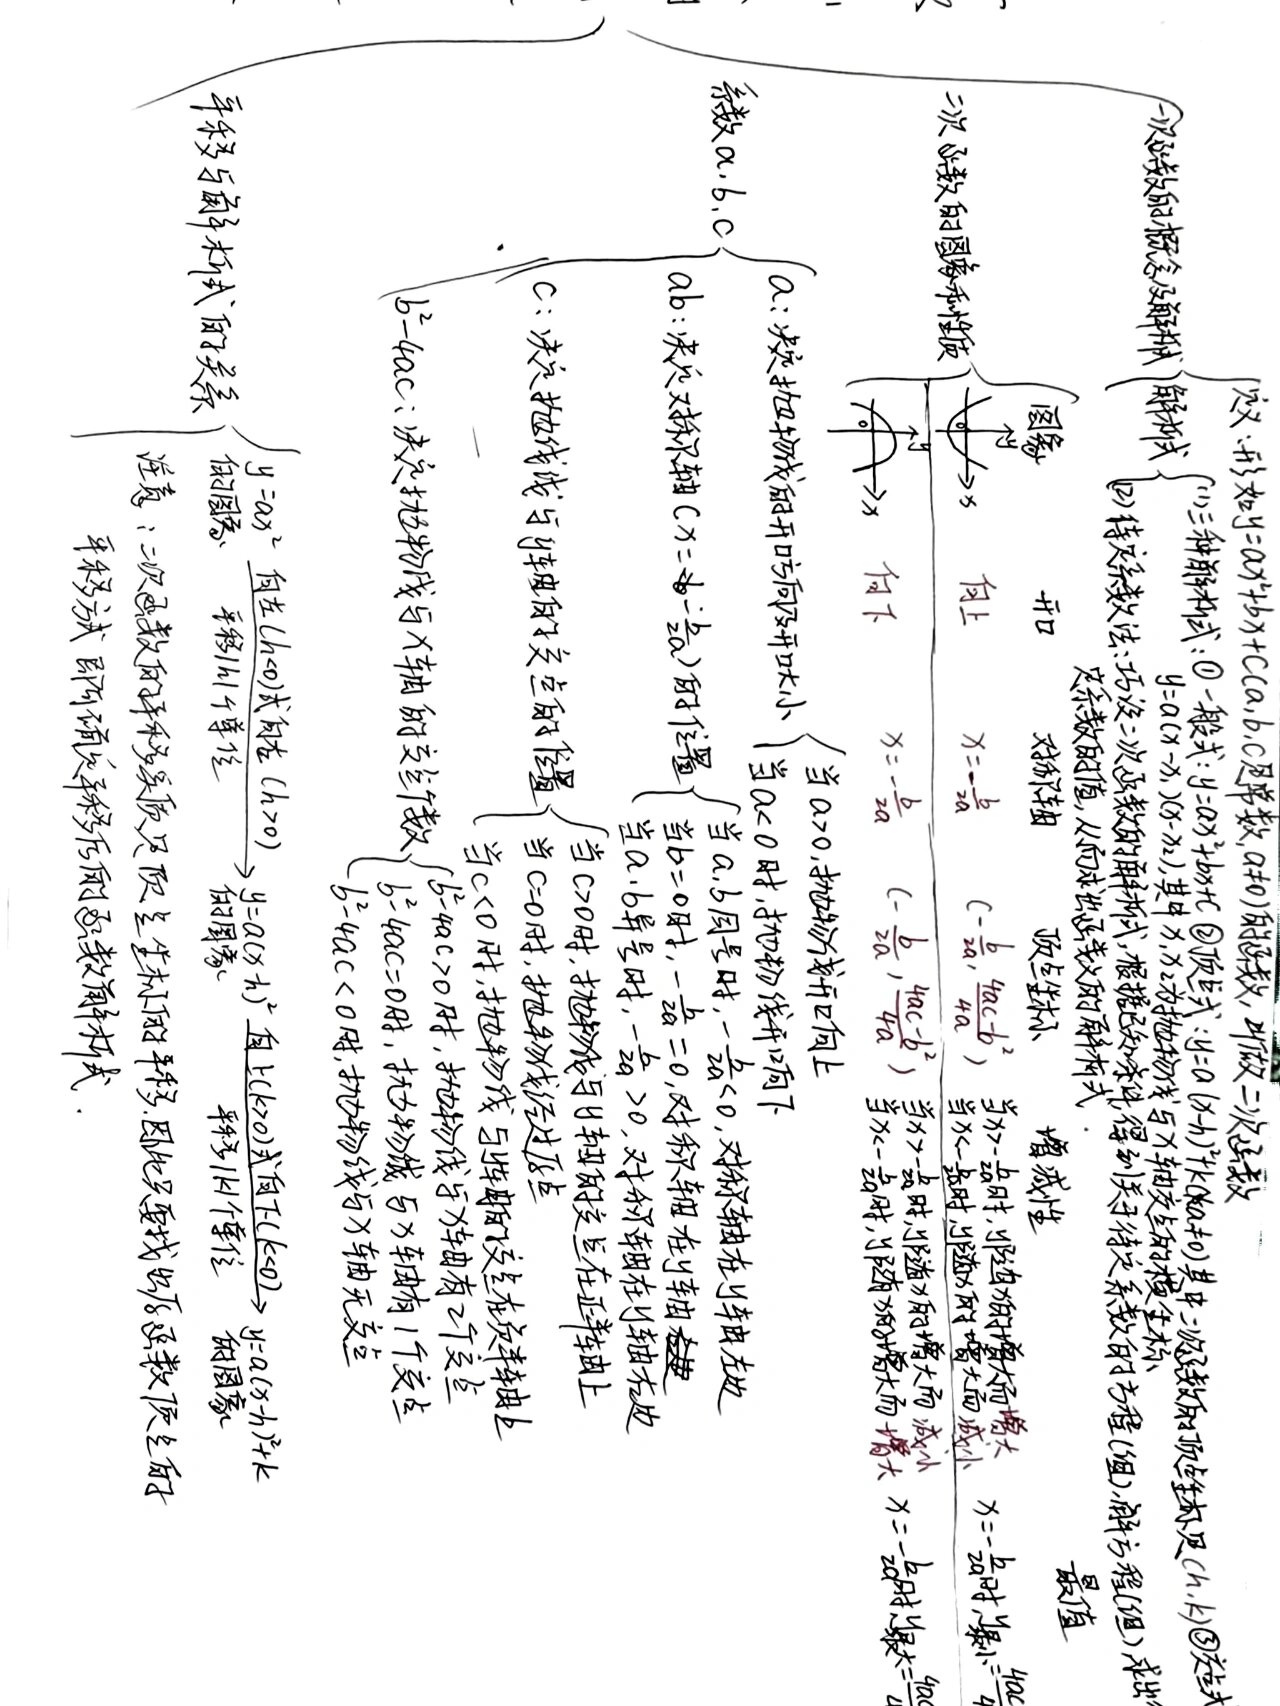 二次函数的概念及解析式
定义:形如y=ax²+bx+c(a,b,c是常数,a≠0)的函数,叫做二次函数
解析式
(1)三种解析式:①一般式:y=ax²+bx+c ②顶点式:y=a(x-h)²+k(a≠0)其中二次函数的顶点坐标是(h,k)③交点式
y=a(x-x₁)(x-x₂),其中x₁,x₂为抛物线与x轴交点的横坐标
(2)待定系数法:巧设二次函数的解析式,根据已知条件,得到关于待定系数的方程(组),解方程(组),求出
定系数的值,从而求出函数的解析式.
二次函数的图象和性质
图象 开口 对称轴 顶点坐标 增减性 最值
y x 0 向上 x=-b/2a (-b/2a, 4ac-b²/4a) 当x>-b/2a时,y随x的增大而增大 x=-b/2a时,y最小=4ac
当x<-b/2a时,y随x的增大而减小
y x 0 向下 x=-b/2a (-b/2a, 4ac-b²/4a) 当x>-b/2a时,y随x的增大而减小 x=-b/2a时,y最大=4ac
当x<-b/2a时,y随x的增大而增大
系数a,b,c
a:决定抛物线的开口方向及开口大小
当a>0,抛物线开口向上
当a<0时,抛物线开口向下
ab:决定对称轴(x=-b/2a)的位置
当a,b同号时,-b/2a<0,对称轴在y轴左边
当b=0时,-b/2a=0,对称轴在y轴
当a,b异号时,-b/2a>0,对称轴在y轴右边
c:决定抛物线线与y轴的交点的位置
当c>0时,抛物线与y轴的交点在正半轴上
当c=0时,抛物线经过原点
当c<0时,抛物线与y轴的交点在负半轴上
b²-4ac:决定抛物线与x轴的交点个数
b²-4ac>0时,抛物线与x轴有2个交点
b²-4ac=0时,抛物线与x轴有1个交点
b²-4ac<0时,抛物线与x轴无交点
平移与解析式的关系
y=ax²的图象 向左(h<0)或向右(h>0)平移|h|个单位 y=a(x-h)²的图象 向上(k>0)或向下(k<0)平移|k|个单位 y=a(x-h)²+k的图象
注意:二次函数的平移实质是顶点坐标的平移,因此只要找出原函数顶点的
平移方式即可确定平移后的函数解析式.